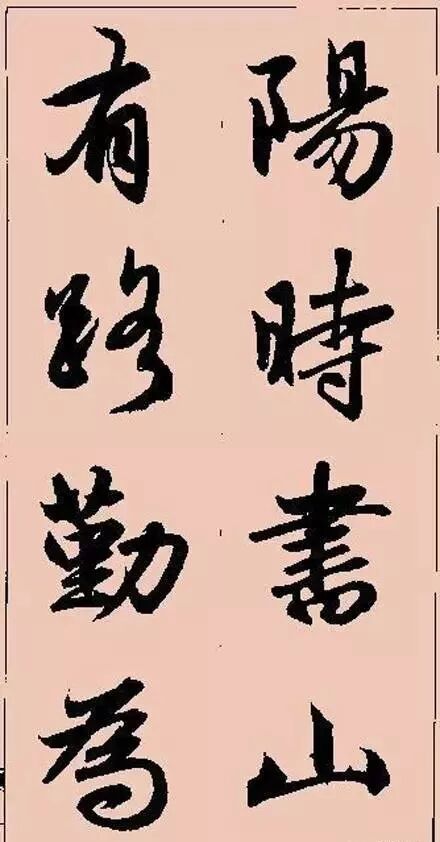 陽時書山
有路勤為